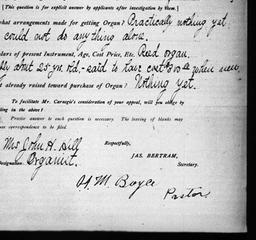 [This question is for explicit answer by applicants after investigation by them.]
what arrangements made for getting Organ? Practically nothing yet.
could not do anything alone.
of present Instrument, Age, Cost Price, Etc. Reed organ.
about 25 yr. old, - said to have cost when new
already raised toward purchase of Organ? Nothing yet.
To facilitate Mr. Carnegie's consideration of your appeal, will you oblige by
in the above!
Precise answer to each question is necessary. The leaving of blanks may
correspondence to be filed.
Respectfully,
Mrs. John H. Hill
JAS. BERTRAM,
Organist.
Secretary.
H. M. Boyce
Pastor